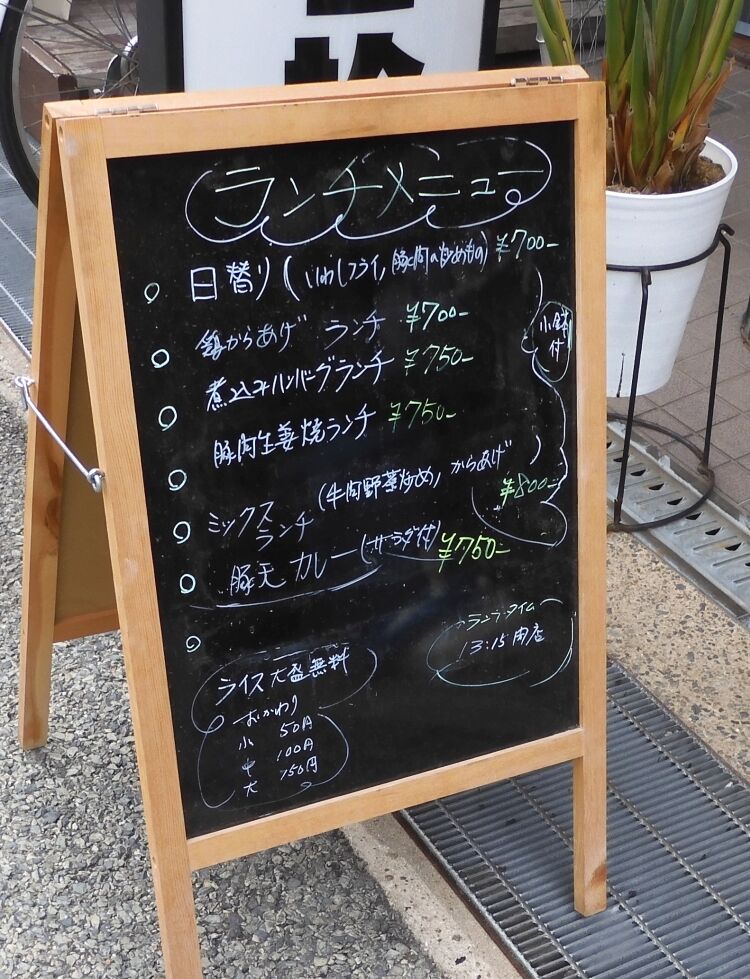 ランチメニュー
日替り(いわしフライ, 豚肉の炒めもの) ¥700-
鶏からあげ ランチ ¥700-
小鉢付
煮込みハンバーグランチ ¥750-
豚肉生姜焼ランチ ¥750-
ミックスランチ (牛肉野菜炒め, からあげ) ¥800-
豚天カレー(サラダ付) ¥750-
ランチタイム
13:15閉店
ライス大盛無料
おかわり
小 50円
中 100円
大 150円